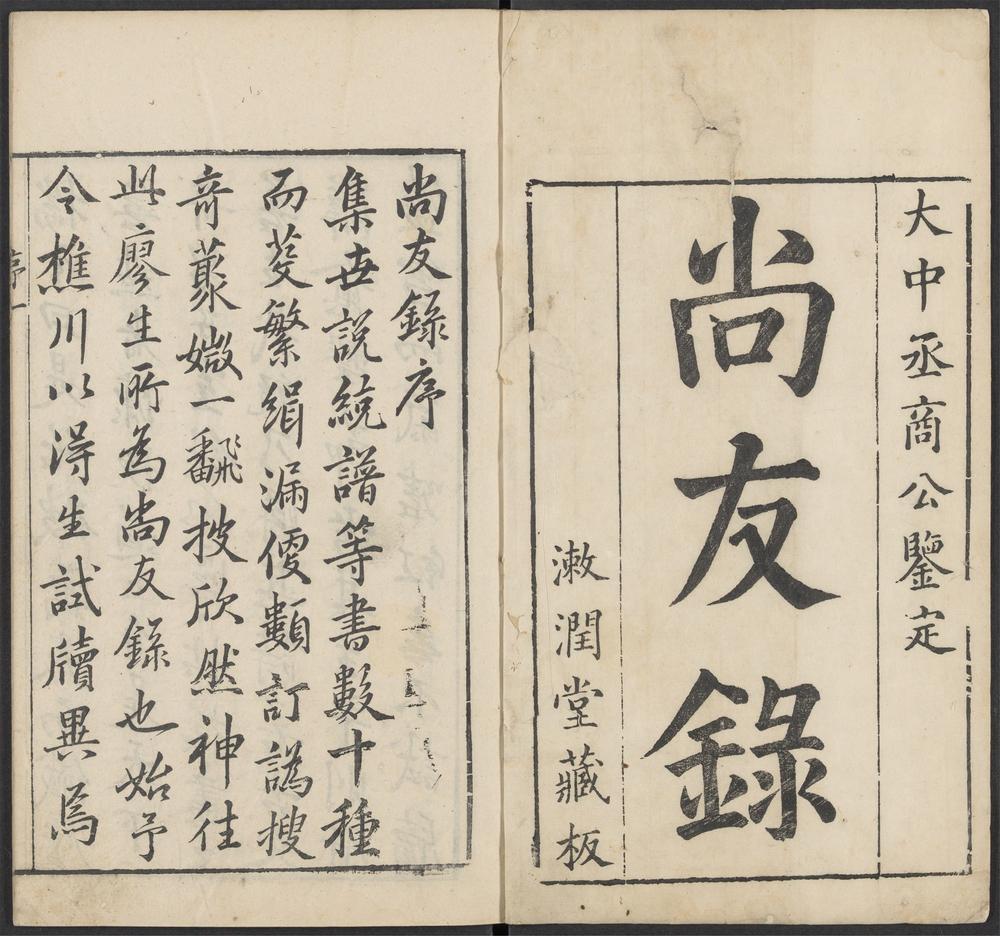 大中丞商公鑒定
尚友錄
漱潤堂藏板
尚友錄序
集世說統譜等書數十種
而芟繁緝漏傻顭訂譌搜
奇蒐媺一飜披欣然神往
此廖生所為尚友錄也始予
令樵川以淂生試牘異焉
序一